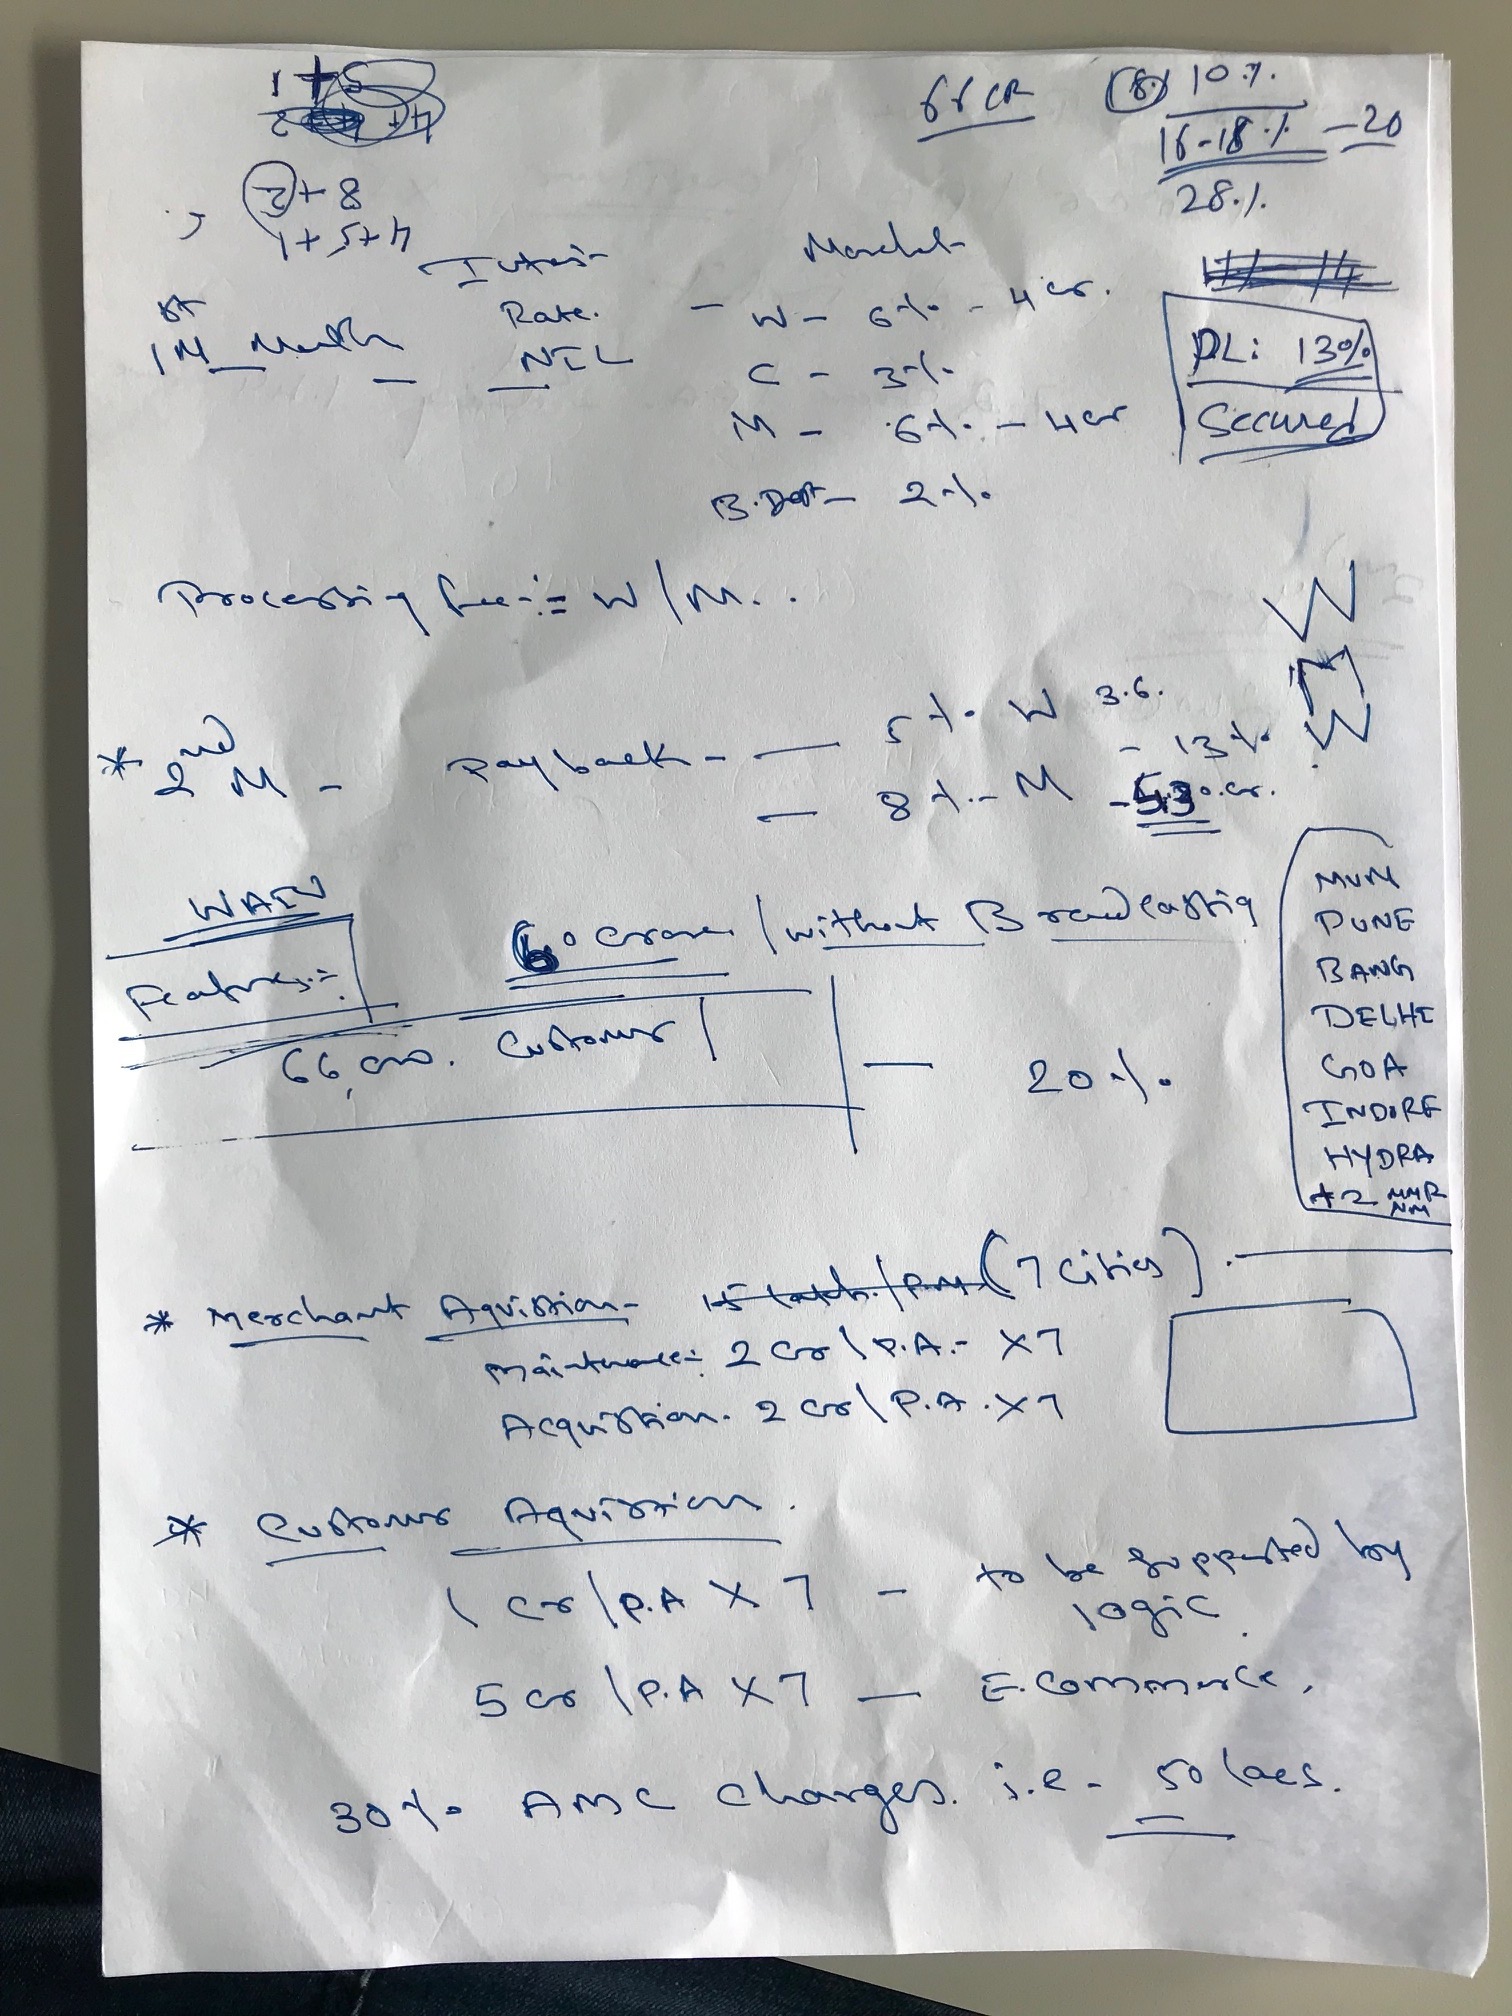 1+5
66 CR
10%
16-18% - 20
28%
3+8
1+5+4
Rate.
NIL
- W - 6% - 4 cr.
C - 3%
M - 6% - 4 cr
B. Dept - 2%
PL: 13%
Secured
Processing fee:= W/M..
W
M
W
* 2nd M - Payback - — 5% W 3.6.
- 13%
— 8% - M
WAIV
Features:=
60 crore / without Broadcasting
66, cro. Customer
— 20%
MUM
PUNE
BANG
DELHI
GOA
INDORE
HYDRA
+2 MMR
NM
* Merchant Aquistion - (7 cities).
2 Cr/P.A.- X7
Acquistion. 2 Cr/P.A. X7
* Customer Aquistion.
1 Cr/P.A X 7 - to be supported by
logic.
5 Cr/P.A X7 — E. Commerce.
30% AMC charges. i.e - 50 lacs.